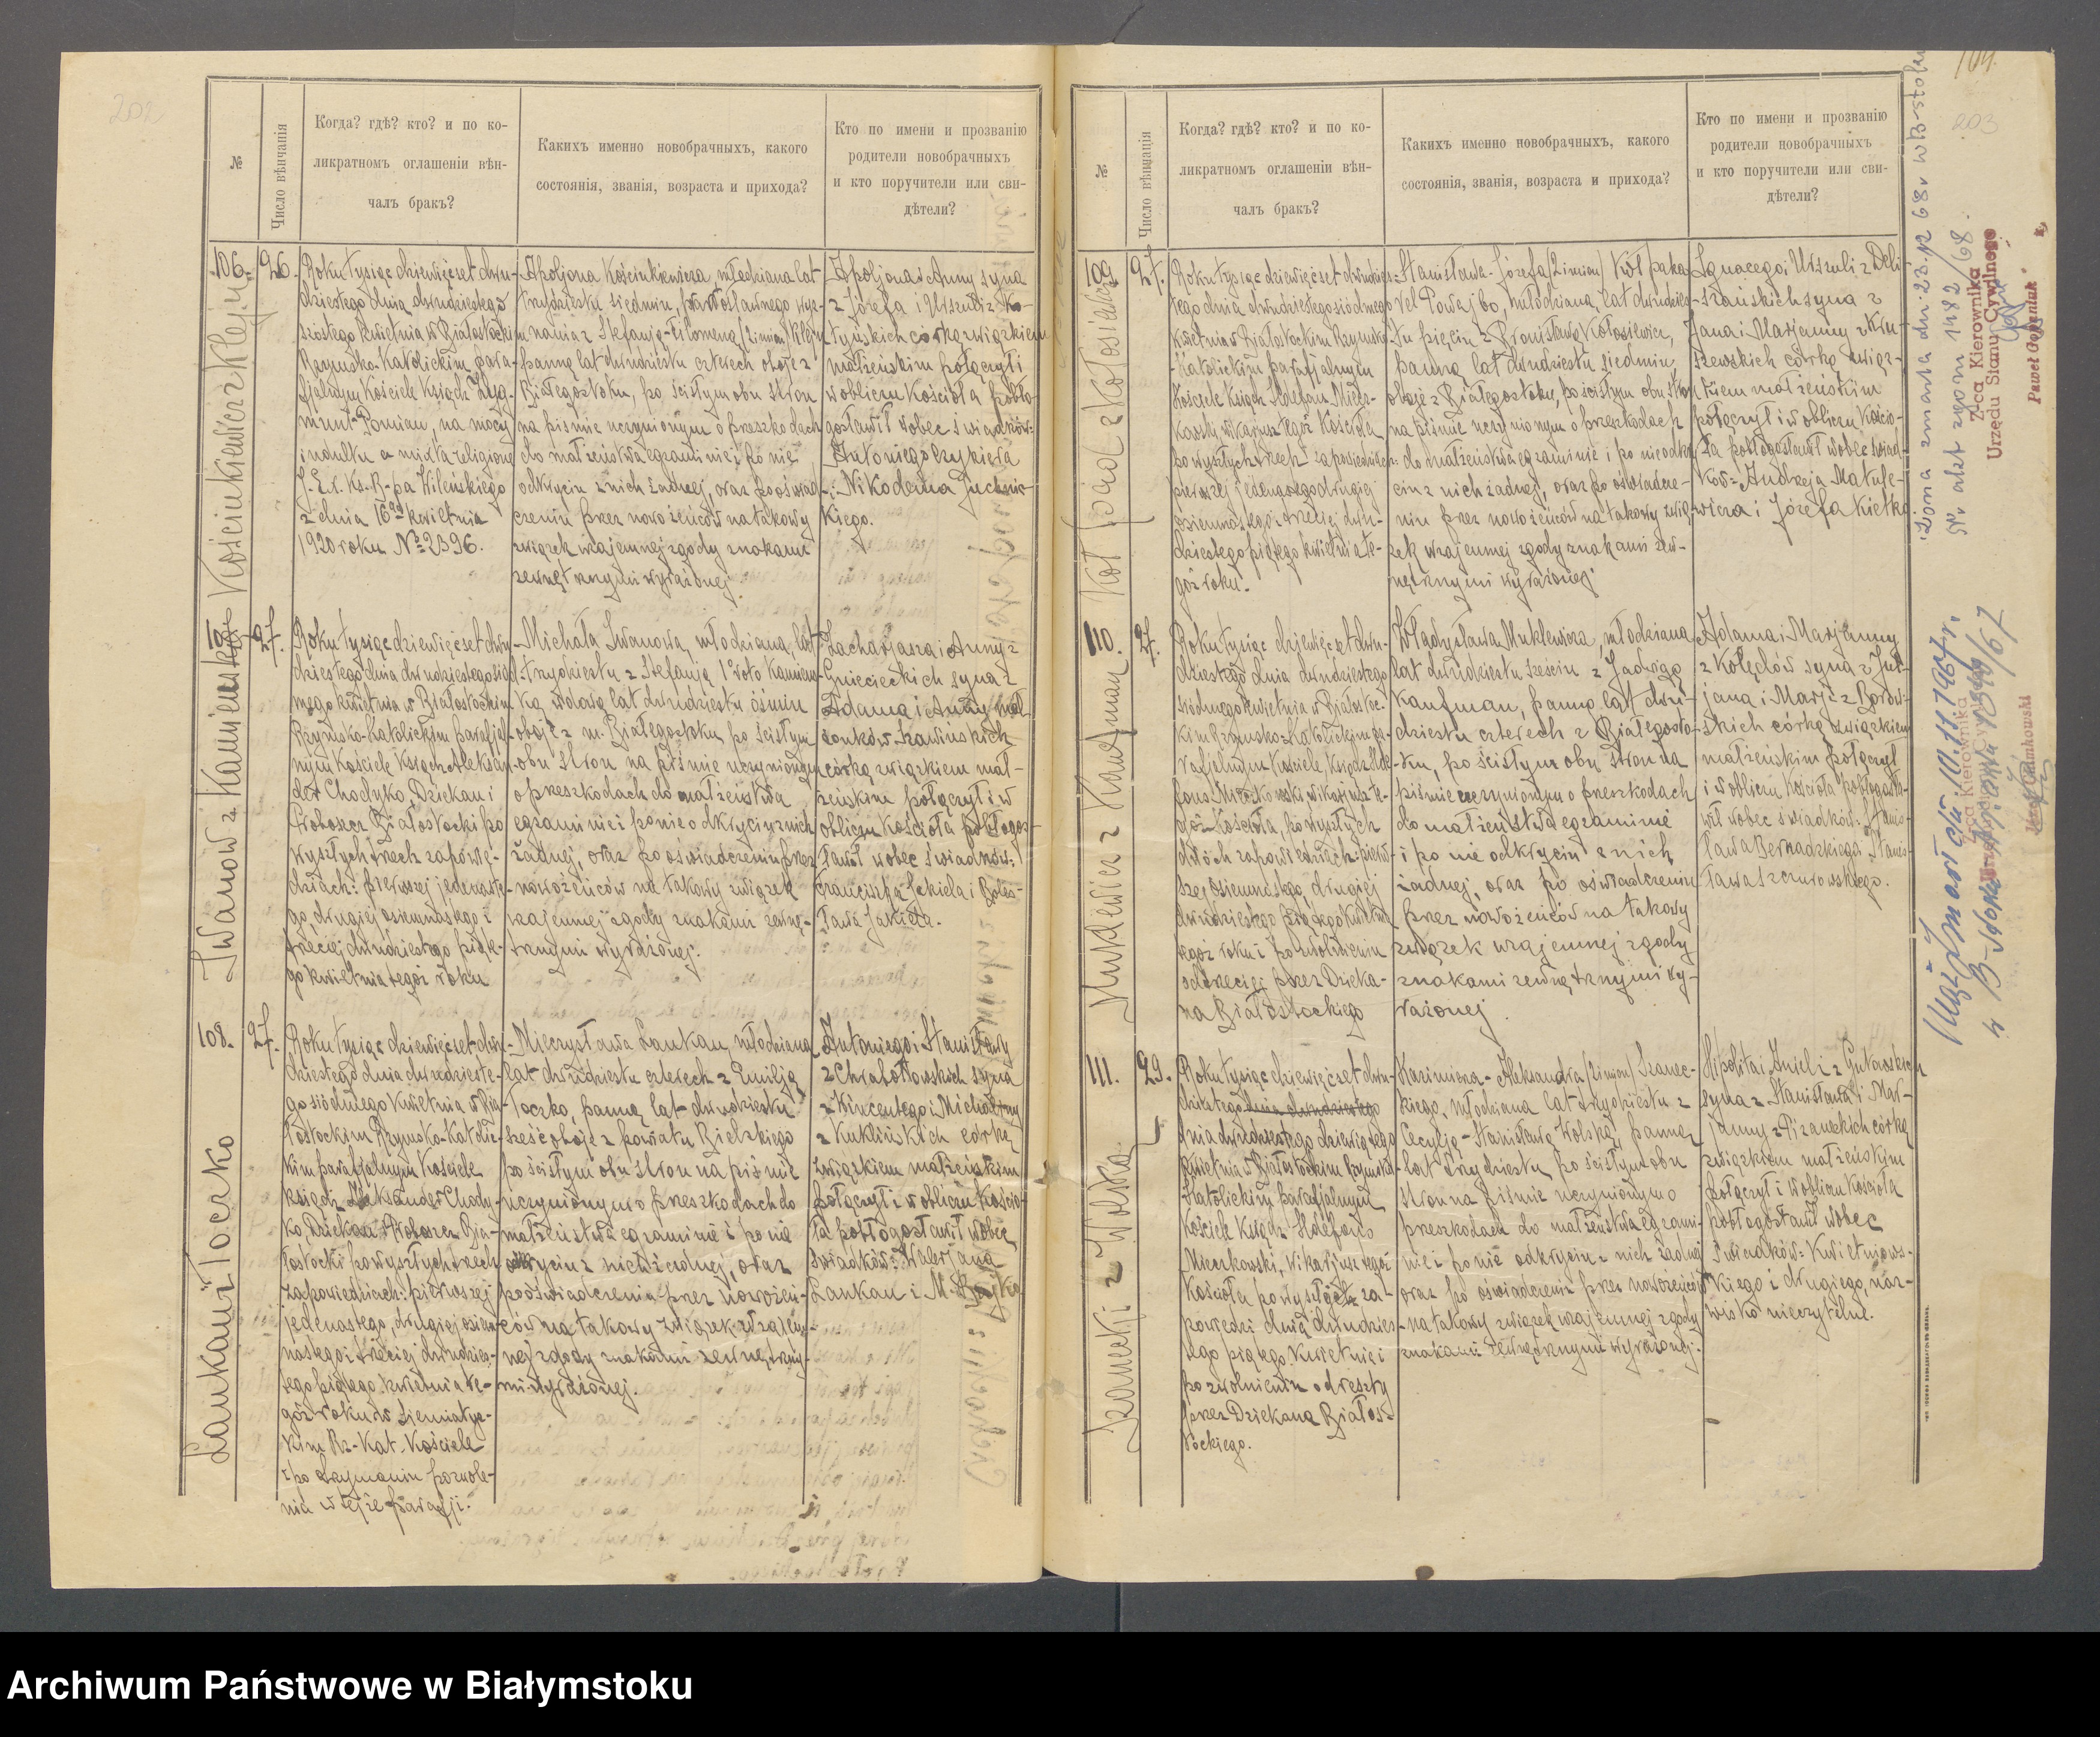 202
№
Число вѣнчанія
Когда? гдѣ? кто? и по ко-
ликратномъ оглашеніи вѣн-
чалъ бракъ?
Какихъ именно новобрачныхъ, какого
состоянія, званія, возраста и прихода?
Кто по имени и прозванію
родители новобрачныхъ
и кто поручители или сви-
дѣтели?
106.
26.
Roku tysiąc dziewięćset dwu-
dziestego dnia dwudziestego
szóstego kwietnia w Białostockim
Rzymsko-Katolickim para-
fjalnym Kościele Ksiądz Zyg-
munt Pomian, na mocy
indultu a mixta religione
J. E. Ks. B-pa Wileńskiego
z dnia 16go kwietnia
1920 roku № 2396.
Apoljona Kościukiewicza młodziana lat
trzydziestu siedmiu, prawosławnego wyz-
nania z Stefanją-Filomeną (2 imion) Klej
panną lat dwudziestu czterech oboje z
Białegostoku, po ścisłym obu stron
na piśmie uczynionym o przeszkodach
do małżeństwa egzaminie i po nie
odkryciu z nich żadnej, oraz po oświad-
czeniu przez nowożeńców na takowy
związek wzajemnej zgody znakami
zewnętrznymi wyrażonej.
Apoljona i Anny syna
z Józefa i Urszuli z Ko-
tyńskich córką związkiem
małżeńskim połączył i
w obliczu Kościoła pobło-
gosławił wobec świadków:
Antoniego Krykiera
i Nikodema Juchnic-
kiego.
Iwanow z Kamieńską
107.
27.
Roku tysiąc dziewięćset dwu-
dziestego dnia dwudziestego siód-
mego kwietnia w Białostockim
Rzymsko-Katolickim parafjal-
nym Kościele Ksiądz Aleksan-
der Chodyko, Dziekan i
Proboszcz Białostocki po
wyszłych trzech zapowie-
dziach: pierwszej jedenaste-
go, drugiej osiemnastego i
trzeciej dwudziestego piąte-
go kwietnia tegoż roku
Michała Iwanowa, młodziana, lat
trzydziestu z Stefanją 1° voto Kamień-
ską wdową lat dwudziestu ośmiu
oboje z m. Białegostoku, po ścisłym
obu stron na piśmie uczynionym
o przeszkodach do małżeństwa
egzaminie i po nie odkryciu z nich
żadnej, oraz po oświadczeniu przez
nowożeńców na takowy związek
wzajemnej zgody znakami zewnę-
trznymi wyrażonej.
Zacharjasza i Anny z
Gniecieckich syna z
Adama i Anny mał-
żonków Szawińskich
córką związkiem mał-
żeńskim połączył i w
obliczu Kościoła pobłogos-
ławił wobec świadków:
Franciszka Jekiela i Boles-
ława Jakiela.
Laukau z Toczko
108.
27.
Roku tysiąc dziewięćset dwu-
dziestego dnia dwudzieste-
go siódmego kwietnia w Bia-
łostockim Rzymsko-Katolic-
kim parafjalnym Kościele
ksiądz Aleksander Chody-
ko, Dziekan i Proboszcz Bia-
łostocki po wyszłych trzech
zapowiedziach: pierwszej
jedenastego, drugiej osiem-
nastego i trzeciej dwudzies-
tego piątego kwietnia te-
goż roku w Siemiatyc-
kim Rz-Kat. Kościele
i po otrzymaniu pozwole-
nia w tejże parafji.
Mieczysława Laukau, młodziana
lat dwudziestu czterech z Emilją
Toczko, panną lat dwudziestu
sześć oboje z powiatu Bielskiego
po ścisłym obu stron na piśmie
uczynionym o przeszkodach do
małżeństwa egzaminie i po nie
odkryciu z nich żadnej, oraz
po oświadczeniu przez nowożeń-
ców na takowy związek wzajem-
nej zgody znakami zewnętrzny-
mi wyrażonej.
Antoniego i Stanisławy
z Chrabołowskich syna
z Wincentego i Michaliny
z Kuklińskich córką
związkiem małżeńskim
połączył i w obliczu Kościo-
ła pobłogosławił wobec
świadków: Walerjana
Laukau i M.
104.
203
№
Число вѣнчанія
Когда? гдѣ? кто? и по ко-
ликратномъ оглашеніи вѣн-
чалъ бракъ?
Какихъ именно новобрачныхъ, какого
состоянія, званія, возраста и прихода?
Кто по имени и прозванію
родители новобрачныхъ
и кто поручители или сви-
дѣтели?
109.
27.
Roku tysiąc dziewięćset dwudzies-
tego dnia dwudziestego siódmego
kwietnia w Białostockim Rzymsko-
-Katolickim parafjalnym
Kościele Ksiądz Ildefons Miecz-
kowski wikarjusz tegoż Kościoła
po wyszłych trzech zapowiedziach:
pierwszej jedenastego drugiej
osiemnastego i trzeciej dwu-
dziestego piątego kwietnia te-
goż roku.
Stanisława-Józefa (2 imion) Kot
vel Powajbo, młodziana lat dwudzies-
tu pięciu z Bronisławą Kołosiewicz,
panną lat dwudziestu siedmiu,
oboje z Białegostoku, po ścisłym obu stron
na piśmie uczynionym o przeszkodach
do małżeństwa egzaminie i po nie odkry-
ciu z nich żadnej, oraz po oświadcze-
niu przez nowożeńców na takowy zwią-
zek wzajemnej zgody znakami zew-
nętrznymi wyrażonej.
Ignacego i Urszuli z Deli-
szańskich syna z
Jana i Marjanny z Kru-
szewskich córką związ-
kiem małżeńskim
połączył i w obliczu Kościo-
ła pobłogosławił wobec świad-
ków: Andrzeja Matule-
wicza i Józefa Kiełko
Muklewicz z Kaufman
110.
27.
Roku tysiąc dziewięćset dwu-
dziestego dnia dwudziestego
siódmego kwietnia w Białostoc-
kim Rzymsko-Katolickim pa-
rafjalnym Kościele, Ksiądz Ilde-
fons Mieczkowski wikarjusz te-
goż Kościoła, po wyszłych
dwóch zapowiedziach: pierw-
szej osiemnastego, drugiej
dwudziestego piątego kwietnia
tegoż roku i po zwolnieniu
od trzeciej przez Dzieka-
na Białostockiego
Władysława Muklewicza, młodziana
lat dwudziestu sześciu z Jadwigą
Kaufman, panną lat dwu-
dziestu czterech z Białegosto-
ku, po ścisłym obu stron na
piśmie uczynionym o przeszkodach
do małżeństwa egzaminie
i po nie odkryciu z nich
żadnej, oraz po oświadczeniu
przez nowożeńców na takowy
związek wzajemnej zgody
znakami zewnętrznymi wy-
rażonej.
Adama i Marjanny
z Kolędów syna z Jul-
jana i Marji z Borow-
skich córką związkiem
małżeńskim połączył
i w obliczu Kościoła pobłogosła-
wił wobec świadków: Stanis-
ława Bernadzkiego i Stanis-
ława Szczurowskiego.
Szanecki z Wolską
111.
29.
Roku tysiąc dziewięćset dwu-
dziestego dnia dwudziestego
dnia dwudziestego dziewiątego
kwietnia w Białostockim Rzymsko-
Katolickim parafjalnym
Kościele Ksiądz Ildefons
Mieczkowski, Wikarjusz tegoż
Kościoła po wyszłych za-
powiedzi dnia dwudzies-
tego piątego kwietnia i
po zwolnieniu od reszty
przez Dziekana Białos-
tockiego.
Kazimierza-Aleksandra (2 imion) Szanec-
kiego, młodziana lat trzydziestu z
Cecylją-Stanisławą Wolską, panną
lat trzydziestu, po ścisłym obu
stron na piśmie uczynionym o
przeszkodach do małżeństwa egzami-
nie i po nie odkryciu z nich żadnej
oraz po oświadczeniu przez nowożeńców
na takowy związek wzajemnej zgody
znakami zewnętrznymi wyrażonej.
Hipolita i Anieli z Gutowskich
syna z Stanisława i Mar-
janny z Pisaneckich córką
związkiem małżeńskim
połączył i w obliczu Kościoła
pobłogosławił wobec
świadków: Kwietniows-
kiego i drugiego, naz-
wisko nieczytelne.
Żona zmarła dn. 23.12 68r w B-stoku
Nr aktu zgonu 1482/68.
Z-ca Kierownika
Urzędu Stanu Cywilnego
Mąż zmarł dn. 10.11.1967r.
w B-stoku
Z-ca Kierownika
Archiwum Państwowe w Białymstoku